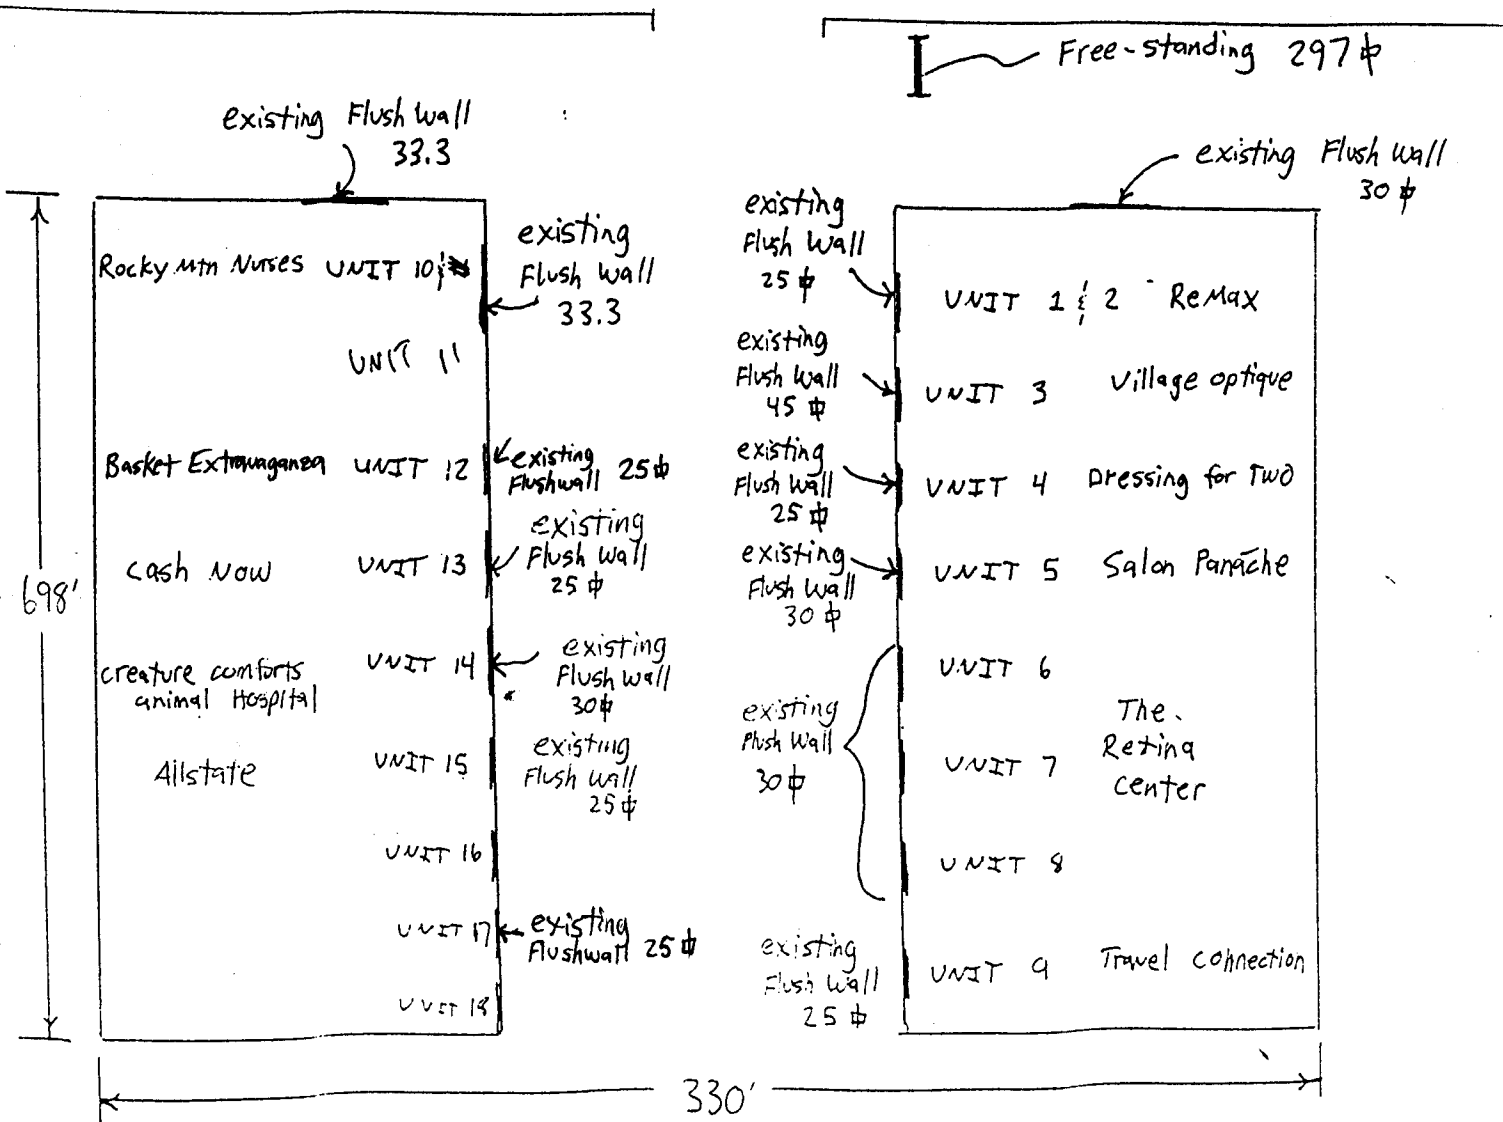 Free-standing 297 ⏍
existing Flush Wall
33.3
existing Flush Wall
30 ⏍
Rocky Mtn Nurses UNIT 10 &
existing
Flush Wall
33.3
UNIT 11
Basket Extravaganza UNIT 12
existing
Flushwall 25 ⏍
Cash Now UNIT 13
existing
Flush Wall
25 ⏍
creature comforts
animal Hospital
UNIT 14
existing
Flush Wall
30 ⏍
Allstate UNIT 15
existing
Flush Wall
25 ⏍
UNIT 16
UNIT 17
existing
Flushwall 25 ⏍
UNIT 18
698'
existing
Flush Wall
25 ⏍
UNIT 1 & 2 ReMax
existing
Flush Wall
45 ⏍
UNIT 3 Village optique
existing
Flush Wall
25 ⏍
UNIT 4 Dressing for Two
existing
Flush Wall
30 ⏍
UNIT 5 Salon Panache
existing
Flush Wall
30 ⏍
UNIT 6
UNIT 7
UNIT 8
The
Retina
Center
existing
Flush Wall
25 ⏍
UNIT 9 Travel Connection
330'